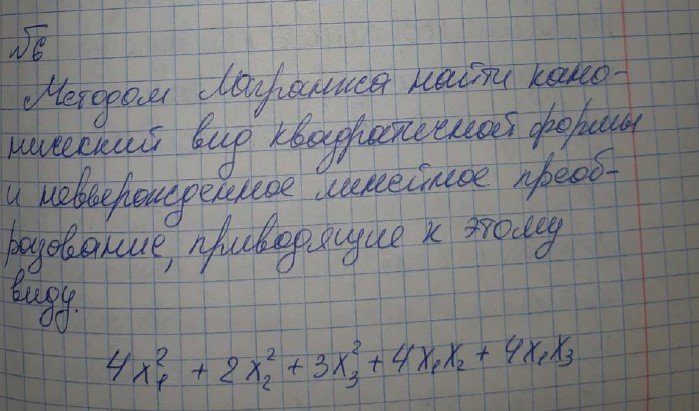 №6
Методом Лагранжа найти кано-
нический вид квадратичной формы
и невырожденное линейное преоб-
разование, приводящие к этому
виду.
4x₁² + 2x₂² + 3x₃² + 4x₁x₂ + 4x₁x₃